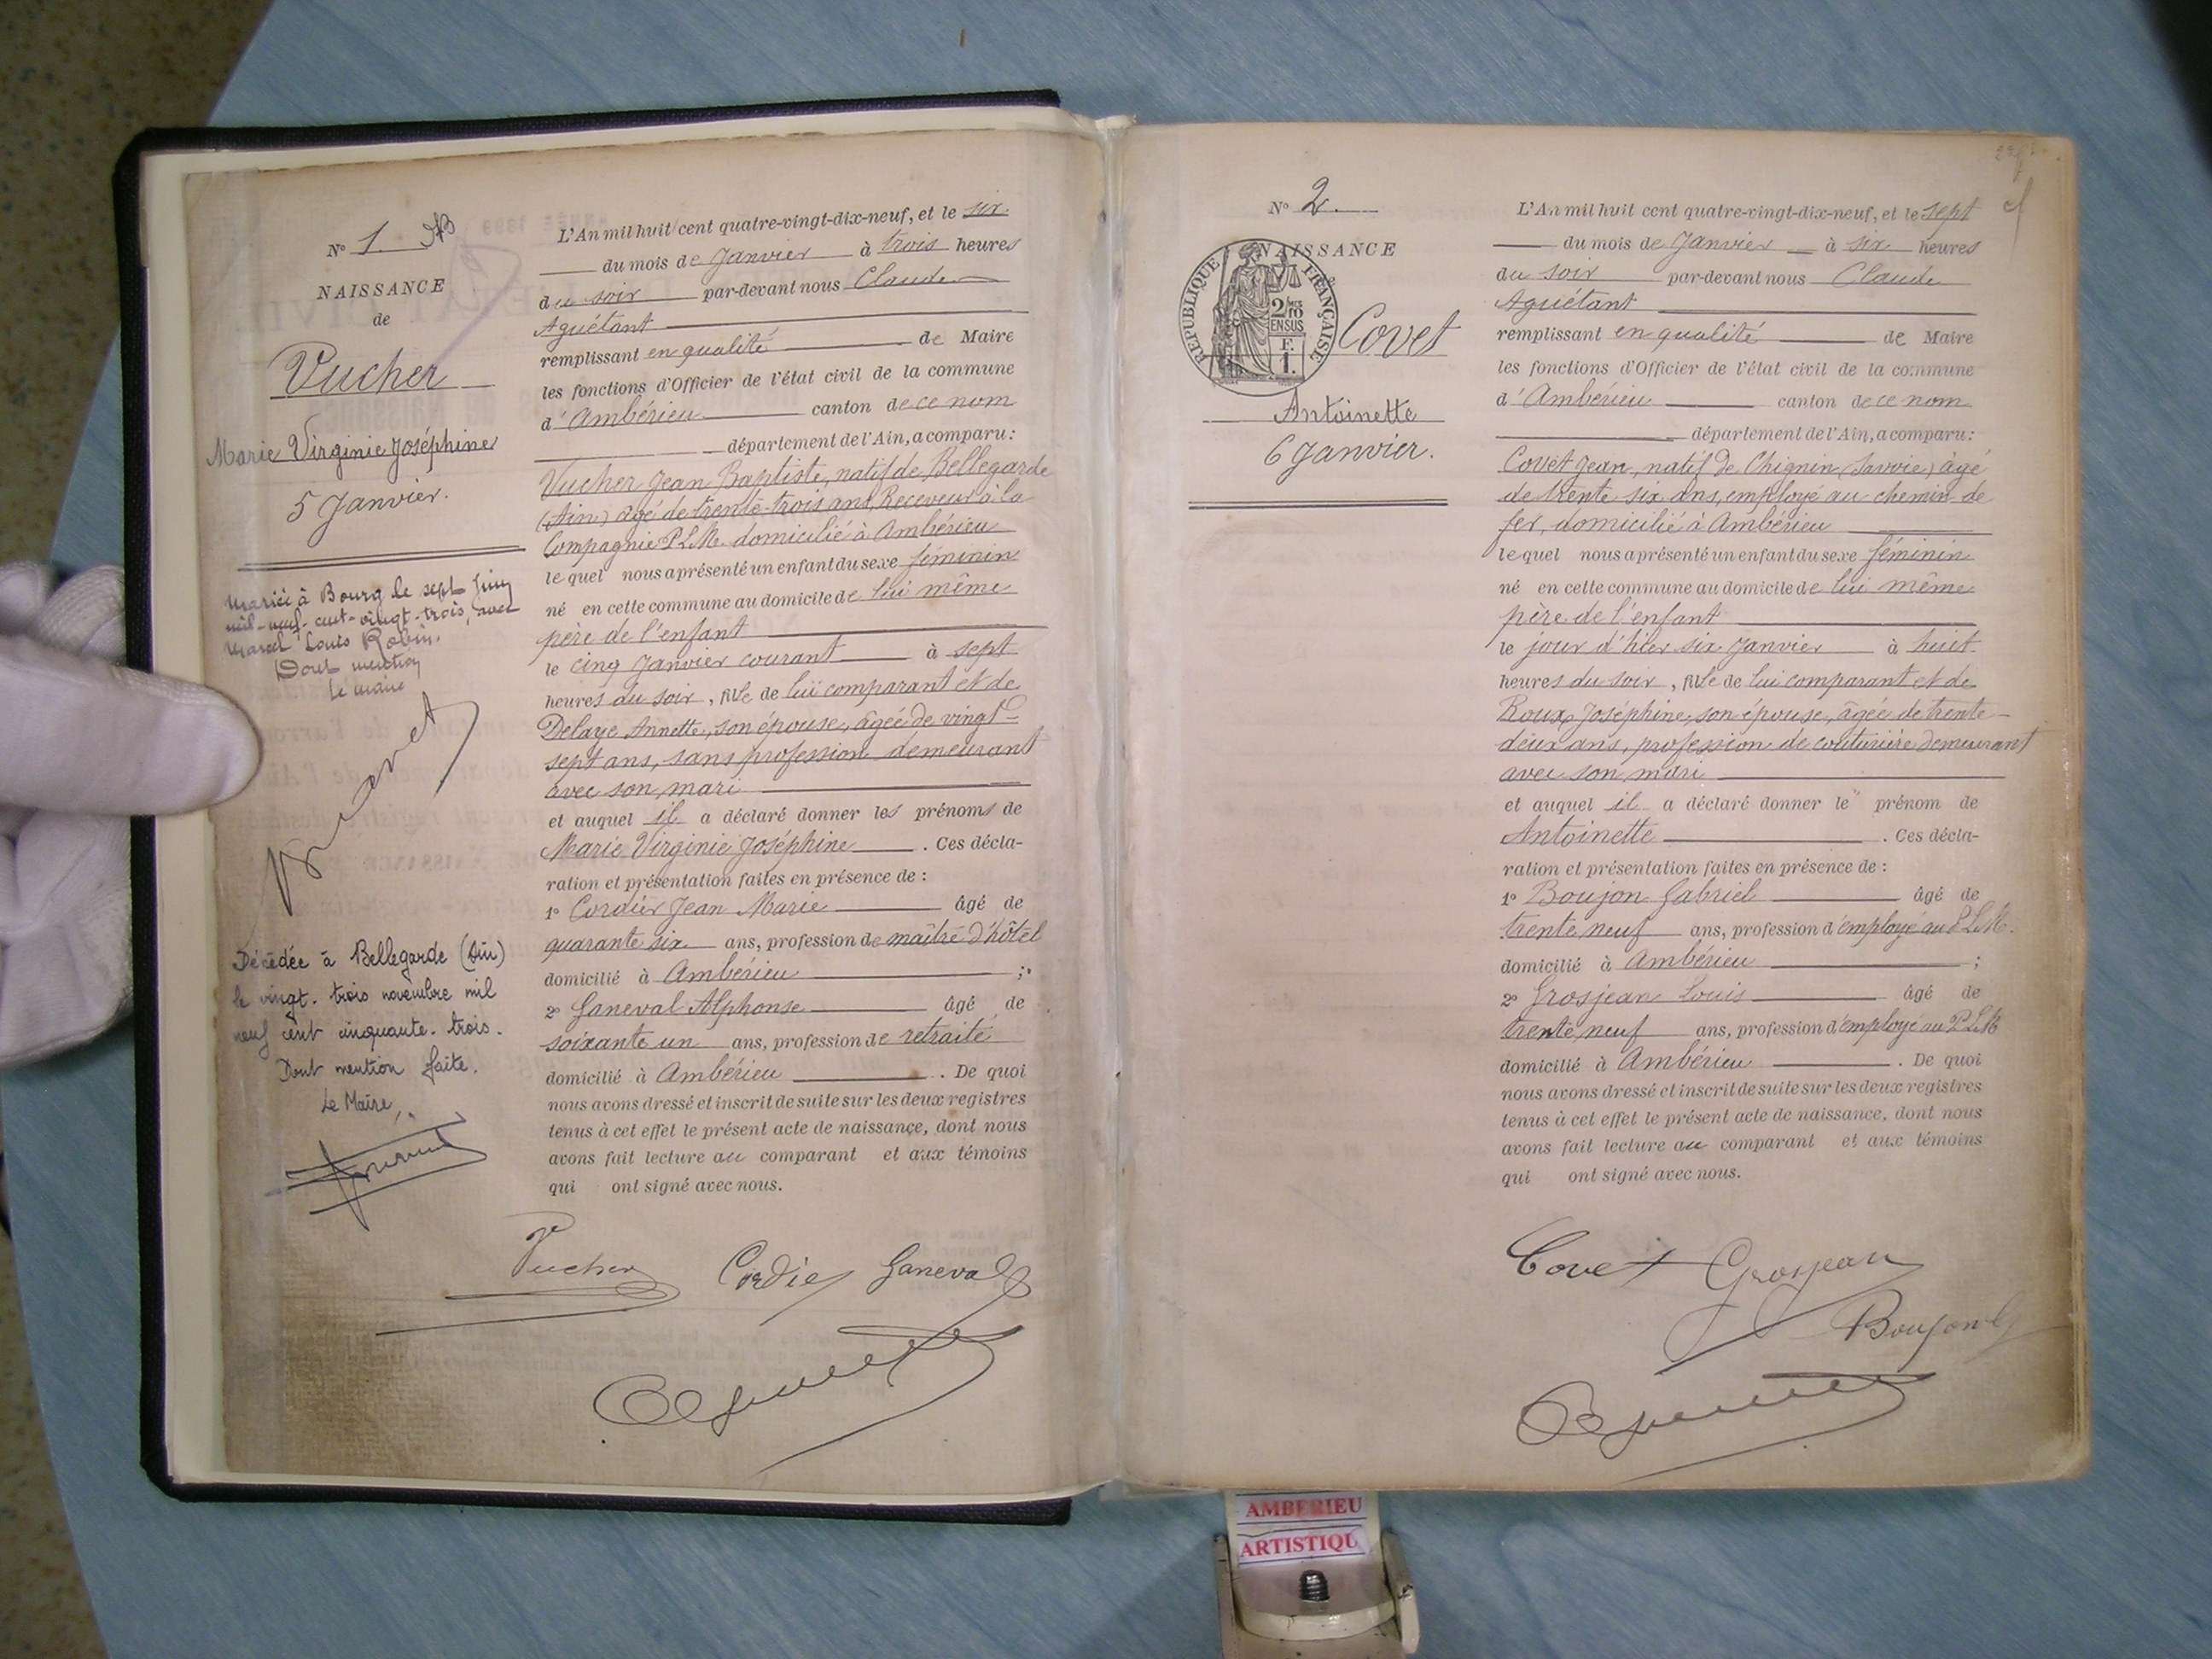 N° 1.
NAISSANCE
de
Vucher
Marie Virginie Joséphine
5 Janvier.
Mariée à Bourg le sept juin
mil-neuf-cent-vingt-trois, avec
Marcel Louis Robin.
Dont mention
Le maire
Décédée à Bellegarde (Ain)
le vingt-trois novembre mil
neuf cent cinquante-trois.
Dont mention faite.
Le Maire,
L'An mil huit cent quatre-vingt-dix-neuf, et le six
du mois de Janvier à trois heures
du soir par-devant nous Claude
Aguétant
remplissant en qualité de Maire
les fonctions d'Officier de l'état civil de la commune
d'Ambérieu canton de ce nom
département de l'Ain, a comparu:
Vucher Jean Baptiste, natif de Bellegarde
(Ain) âgé de trente-trois ans, Receveur à la
Compagnie P.L.M. domicilié à Ambérieu
lequel nous a présenté un enfant du sexe féminin
né en cette commune au domicile de lui même
père de l'enfant
le cinq Janvier courant à sept
heures du soir, fille de lui comparant et de
Delaye Annette, son épouse, âgée de vingt-
sept ans, sans profession demeurant
avec son mari
et auquel il a déclaré donner les prénoms de
Marie Virginie Joséphine. Ces décla-
ration et présentation faites en présence de :
1° Cordier Jean Marie âgé de
quarante six ans, profession de maître d'hôtel
domicilié à Ambérieu ;
2° Ganeval Alphonse âgé de
soixante un ans, profession de retraité
domicilié à Ambérieu. De quoi
nous avons dressé et inscrit de suite sur les deux registres
tenus à cet effet le présent acte de naissance, dont nous
avons fait lecture au comparant et aux témoins
qui ont signé avec nous.
Vucher Cordier Ganeval
Aguétant
N° 2.
NAISSANCE
RÉPUBLIQUE FRANÇAISE
2/10
EN SUS
F.
1.
Covet
Antoinette
6 Janvier.
L'An mil huit cent quatre-vingt-dix-neuf, et le sept
du mois de Janvier à six heures
du soir par-devant nous Claude
Aguétant
remplissant en qualité de Maire
les fonctions d'Officier de l'état civil de la commune
d'Ambérieu canton de ce nom
département de l'Ain, a comparu:
Covet Jean, natif de Chignin (Savoie) âgé
de trente six ans, employé au chemin de
fer, domicilié à Ambérieu
lequel nous a présenté un enfant du sexe féminin
né en cette commune au domicile de lui même
père de l'enfant
le jour d'hier six Janvier à huit
heures du soir, fille de lui comparant et de
Roux Joséphine, son épouse, âgée de trente-
deux ans, profession de couturière demeurant
avec son mari
et auquel il a déclaré donner le prénom de
Antoinette. Ces décla-
ration et présentation faites en présence de :
1° Boujon Gabriel âgé de
trente neuf ans, profession d'employé au P.L.M.
domicilié à Ambérieu ;
2° Grosjean Louis âgé de
trente neuf ans, profession d'employé au P.L.M
domicilié à Ambérieu. De quoi
nous avons dressé et inscrit de suite sur les deux registres
tenus à cet effet le présent acte de naissance, dont nous
avons fait lecture au comparant et aux témoins
qui ont signé avec nous.
Covet Grosjean
Boujon
Aguétant
AMBERIEU
ARTISTIQU